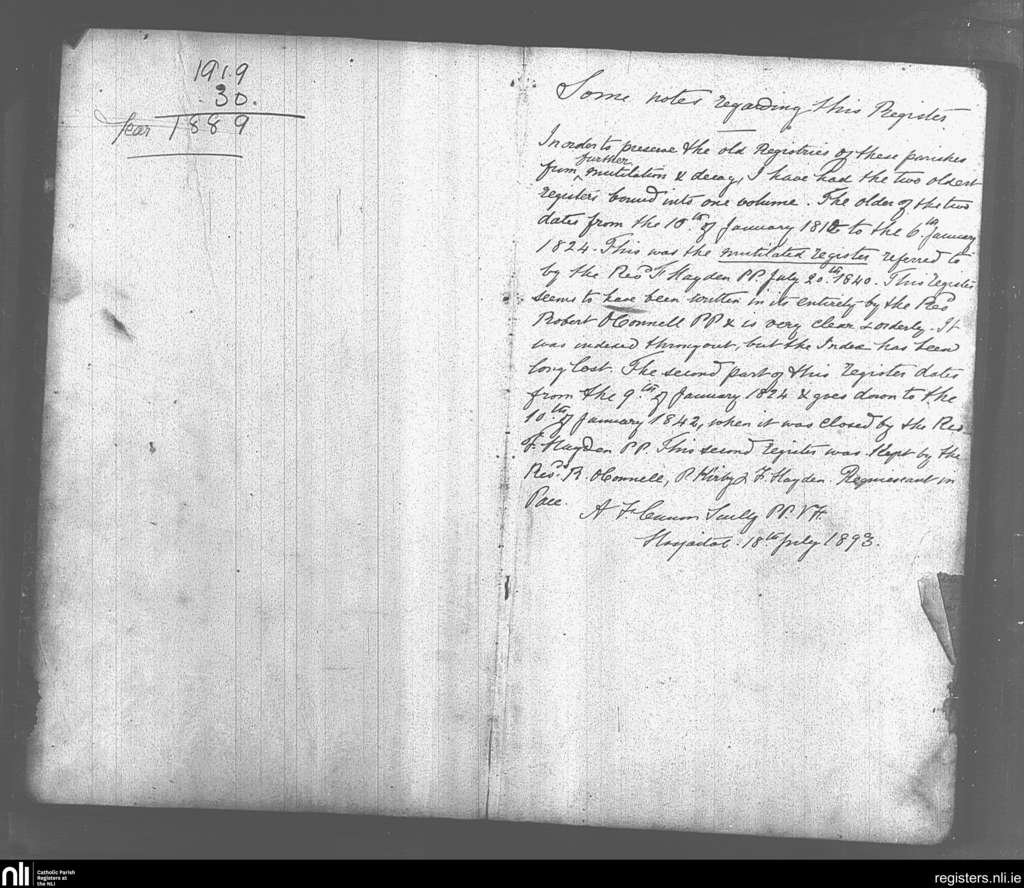 1919
30.
Year 1889
Some notes regarding this Register
In order to preserve the old Registries of these parishes
further
from mutilation & decay, I have had the two oldest
registers bound into one volume. The older of the two
dates from the 10th of January 1812 to the 6th January
1824. This was the mutilated register referred to
by the Revd F Hayden PP July 20th 1840. This register
seems to have been written in its entirety by the Revd
Robert OConnell PP & is very clear & orderly. It
was indexed throughout, but the Index has been
long lost. The second part of this register dates
from the 9th of January 1824 & goes down to the
10th of January 1842, when it was closed by the Rev
F. Hayden PP. This second register was kept by the
Revds R. OConnell, P Kirby & F. Hayden. Requiescant in
Pace.
Scully PP. VF.
Hospital. 18th July 1893.
nli
Catholic Parish
Registers at
the NLI
registers.nli.ie